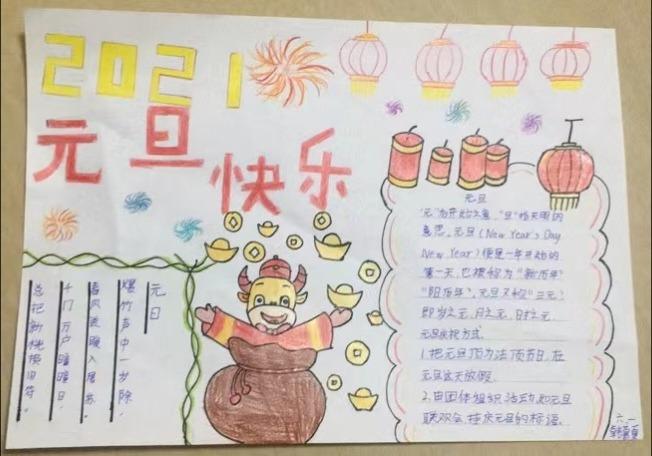 2021
元旦快乐
元日
爆竹声中一岁除，
春风送暖入屠苏。
千门万户曈曈日，
总把新桃换旧符。
元旦
"元"为开始之意，"旦"指天明的
意思。元旦（New Year's Day
New Year）便是一年开始的
第一天，它被称为"新历年"
"阳历年"。元旦又称"三元"，
即岁之元，月之元，日时之元
元旦庆祝方式.
1.把元旦顶为法顶节日，在
元旦这天放假.
2.由团体组织活动，如元旦
联欢会，挂庆元旦的标语.
六.一